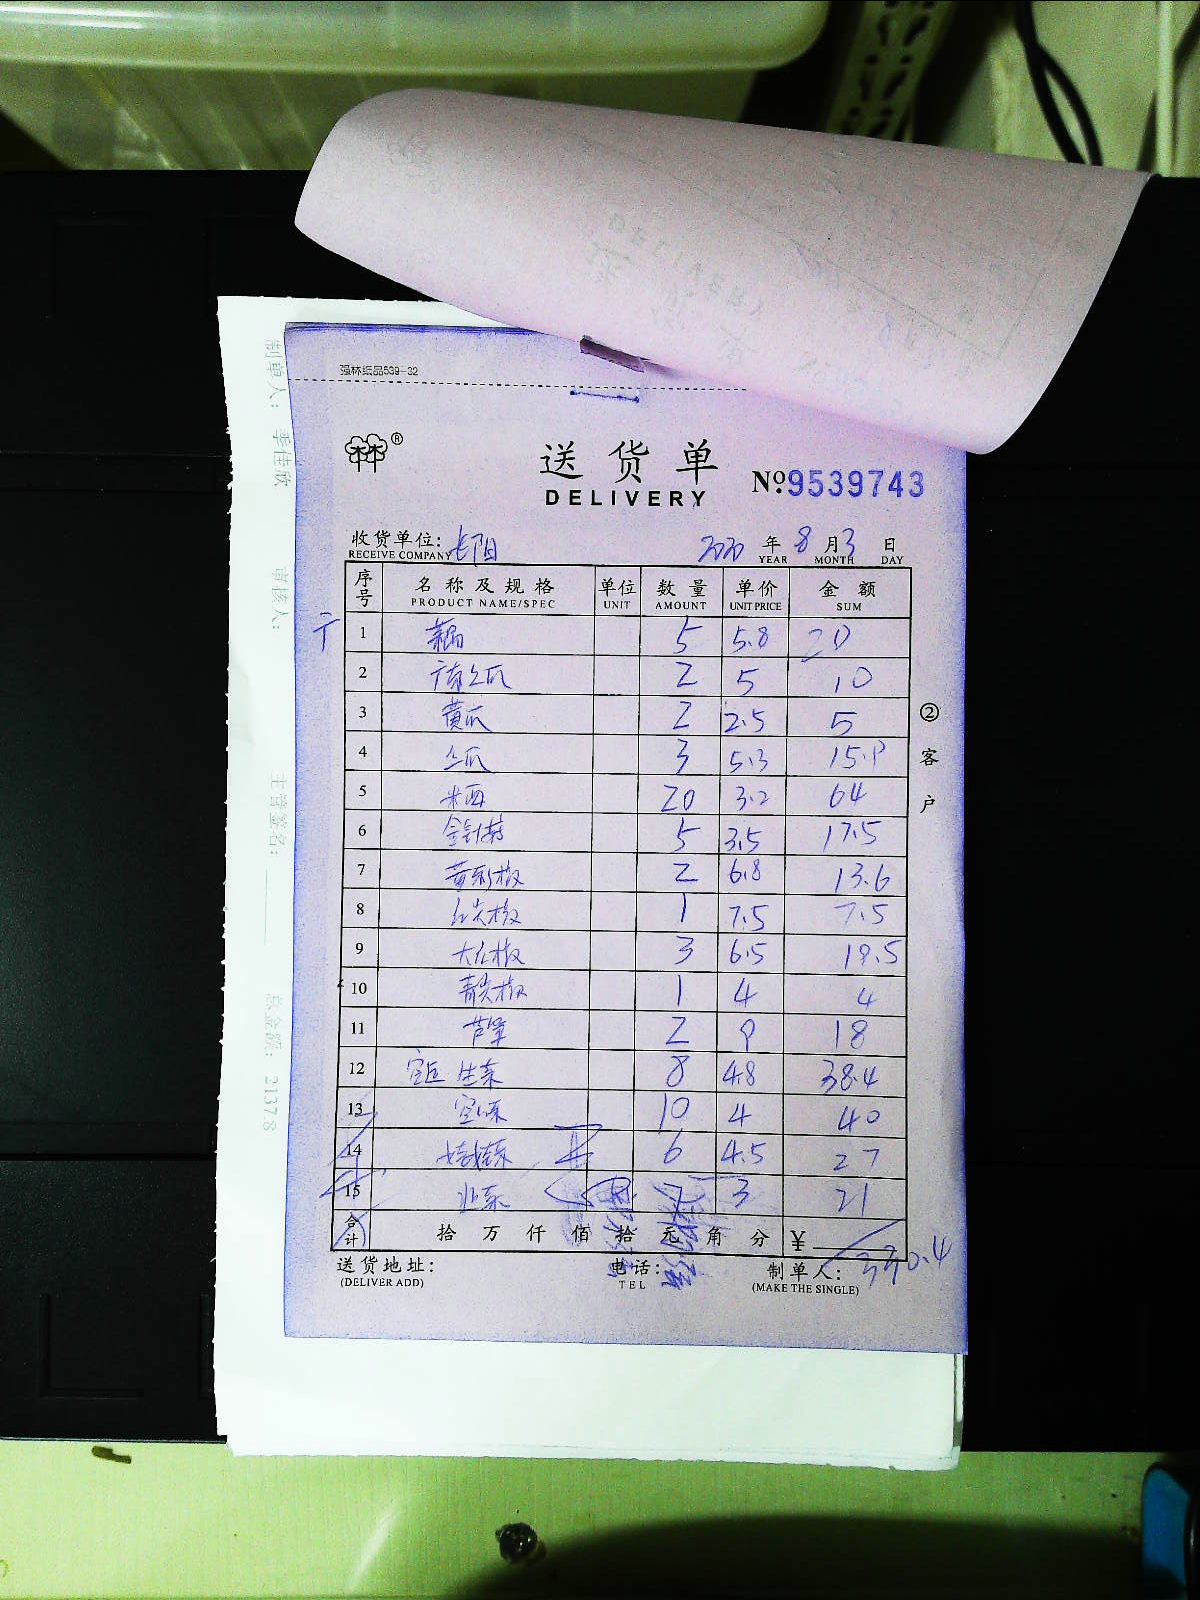 强林纸品539-32
林林®
送货单
DELIVERY
No.9539743
收货单位: 长阳 2020 年 8 月 3 日
RECEIVE COMPANY YEAR MONTH DAY
序号 名称及规格 单位 数量 单价 金额
PRODUCT NAME/SPEC UNIT AMOUNT UNIT PRICE SUM
1 藕 5 5.8 20
2 2 5 10
3 黄瓜 2 2.5 5
4 3 5.3 15.9
5 20 3.2 64
6 金针菇 5 3.5 17.5
7 黄彩椒 2 6.8 13.6
8 红尖椒 1 7.5 7.5
9 大红椒 3 6.5 19.5
10 青尖椒 1 4 4
11 芦笋 2 9 18
12 生菜 8 4.8 38.4
13 10 4 40
14 娃娃菜 6 4.5 27
15 7 3 21
合计 拾 万 仟 佰 拾 元 角 分 ¥ 330.4
送货地址: 电话: 制单人:
(DELIVER ADD) TEL (MAKE THE SINGLE)
②客户
制单人: 季佳欣 审核人: 主管签名: 总金额: 2137.8